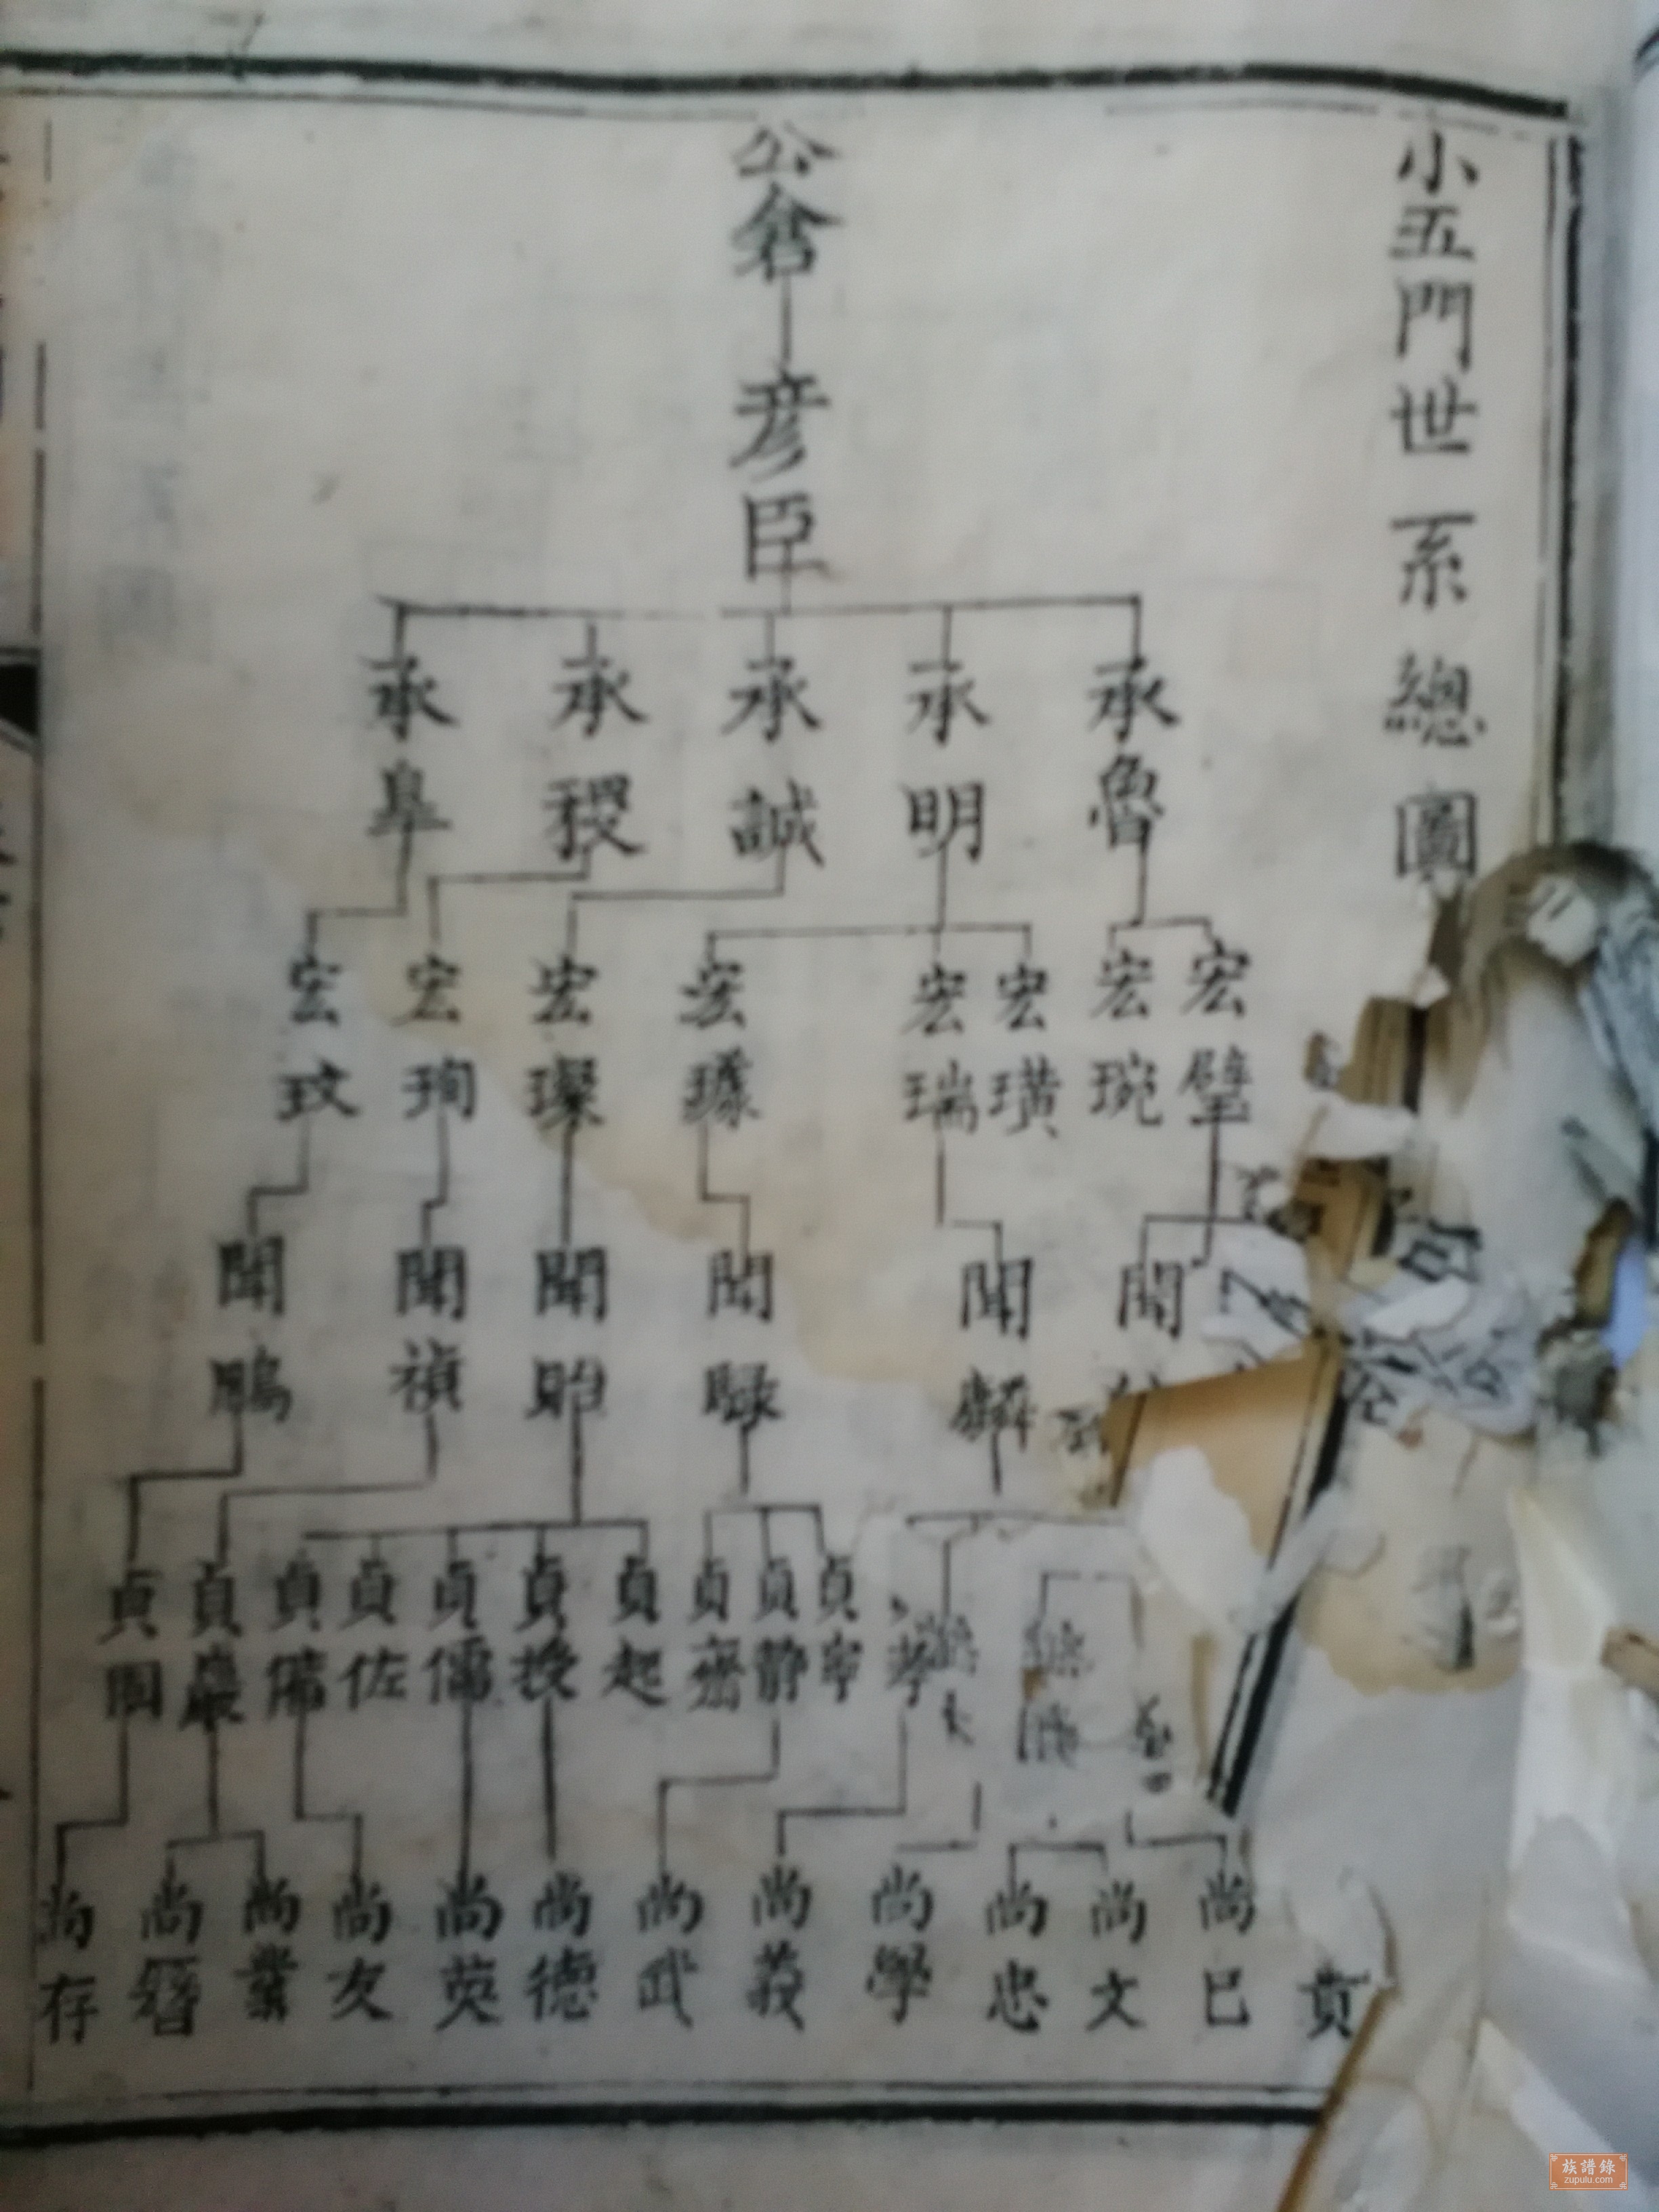 小五門世系總圖
公倉
彥臣
承魯
承明
承誠
承稷
承阜
宏璧
宏琬
宏璜
宏瑞
宏璩
宏璨
宏珣
宏玟
聞
聞麟
聞
聞貽
聞禎
聞鵬
貞寧
貞靜
貞齋
貞起
貞授
貞儒
貞佐
貞儒
貞巖
貞
孝
賁
尚巳
尚文
尚忠
尚學
尚義
尚武
尚德
尚英
尚友
尚業
尚簪
尚存
族譜錄
zupulu.com